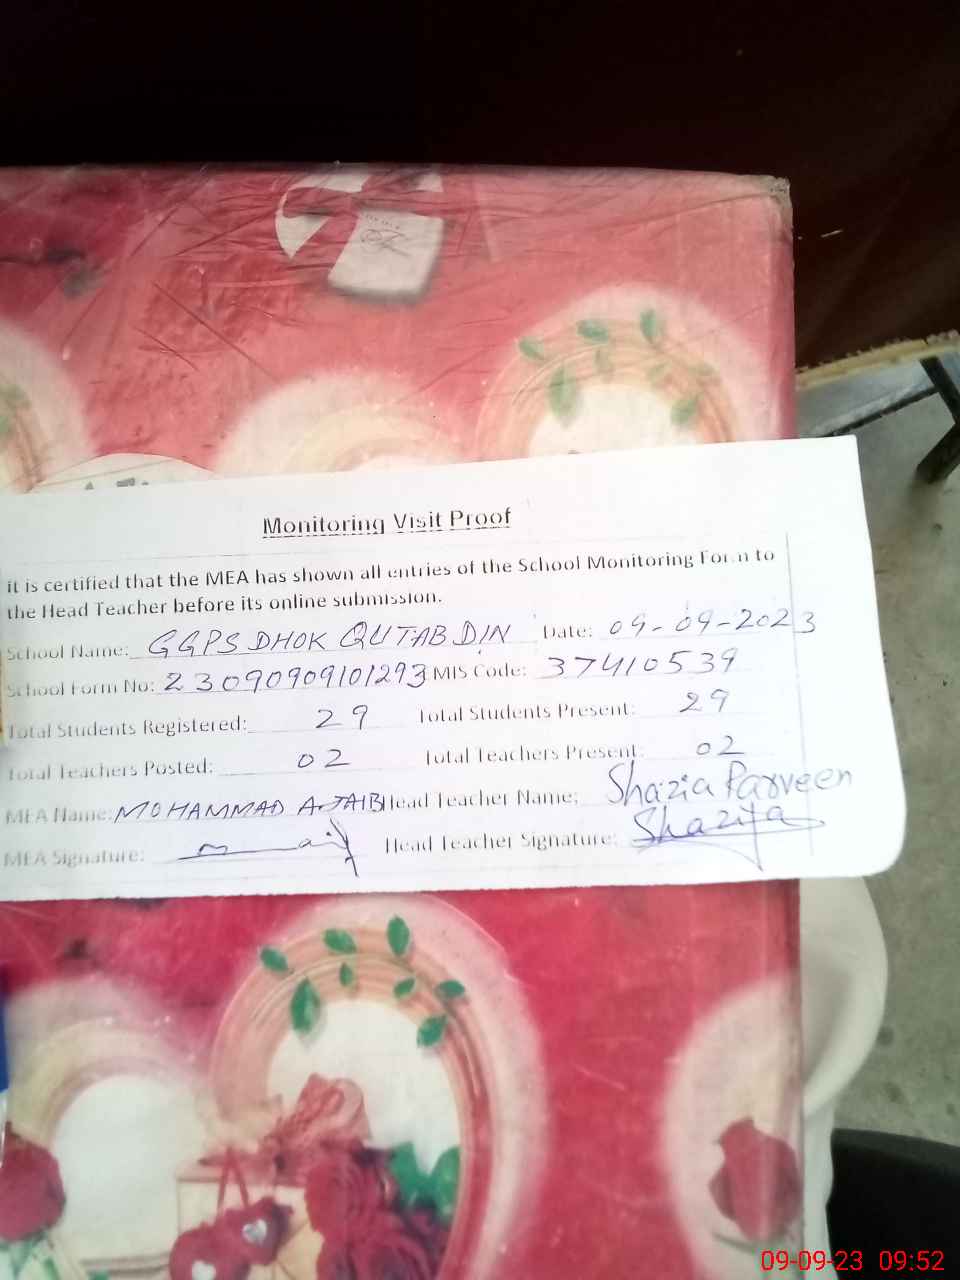 Monitoring Visit Proof
it is certified that the MEA has shown all entries of the School Monitoring Form to
the Head Teacher before its online submission.
School Name: GGPS DHOK QUTAB DIN Date: 09-09-2023
School Form No: 23090909101293 MIS Code: 37410539
Total Students Registered: 29 Total Students Present: 29
Total Teachers Posted: 02 Total Teachers Present: 02
MEA Name: MOHAMMAD AJAIB Head Teacher Name: Shazia Parveen
MEA Signature: Head Teacher Signature: Shazia
09-09-23 09:52